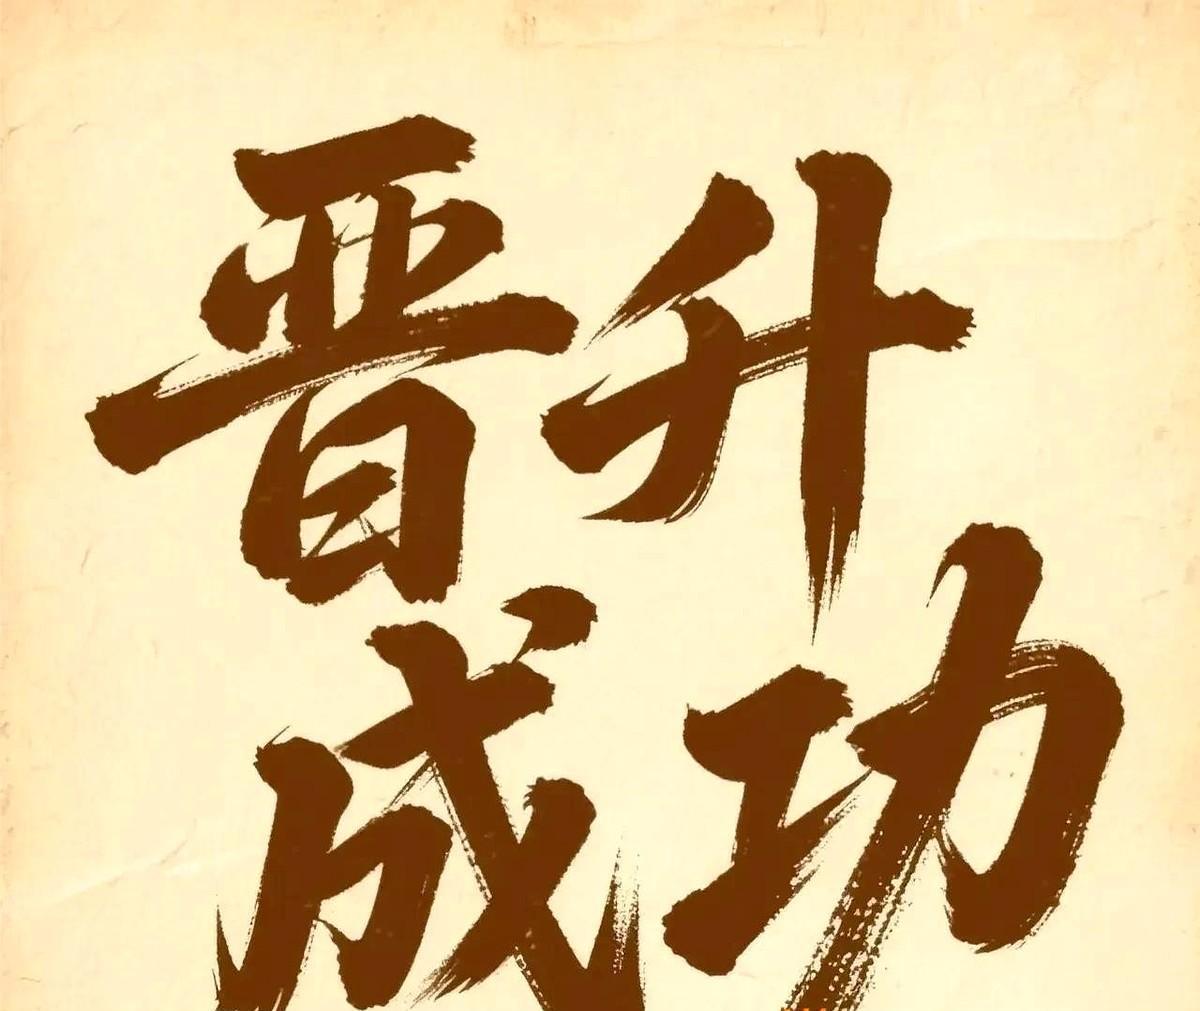 晋升
成功